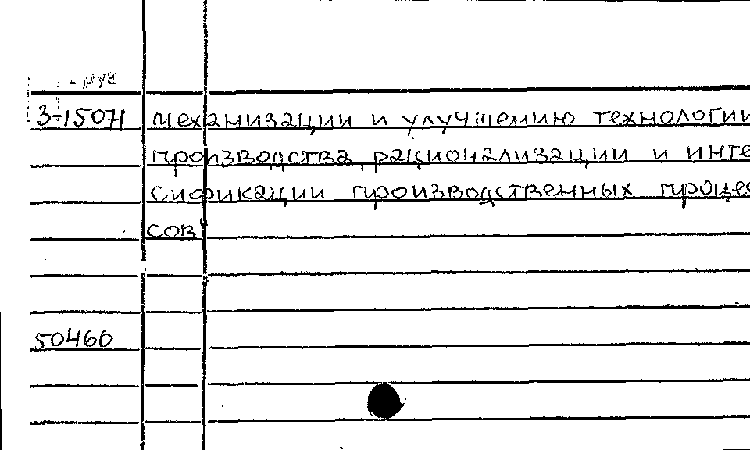 - рус
3-15071 механизации и улучшению технологии
производства, рационализации и инте
сификации производственных процес
сов"
50460